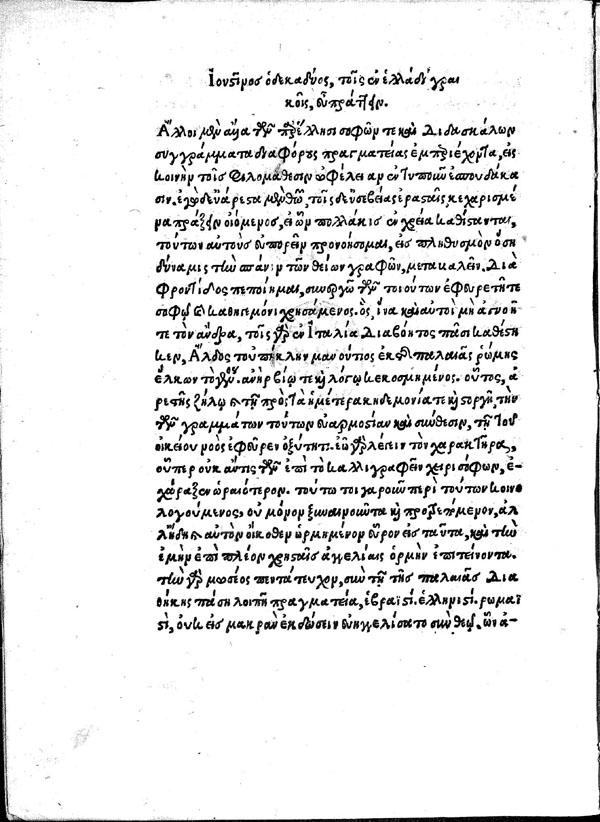 Ἰουστῖνος ὁ δεκαδύος, τοῖς ἐν ἑλλάδι γραι
κοῖς, εὖ πράττειν.
Ἄλλοι μὲν ἄλλα τῶν παρ' ἕλλησι σοφῶν τε καὶ διδασκάλων
συγγράμματα διαφόρους πραγματείας ἐμπεριέχοντα, εἰς
κοινὴν τοῖς φιλομάθεσιν ὠφέλειαν ἐντυποῦν ἐσπουδάκα
σιν. ἐγὼ δ' εὐάρεστα μὲν θεῷ, τοῖς δ' εὐσεβείας ἐρασταῖς κεχαρισμέ
να πράξειν οἰόμενος, εἰ ὧν πολλάκις ἐν χρείᾳ καθίστανται,
τούτων αὐτοὺς εὐπορεῖν προνοήσομαι, εἰς πληθυσμὸν ὅση
δύναμις τὴν σπάνιν τῶν θείων γραφῶν, μετακαλεῖν. διὰ
φροντίδος πεποίημαι, συνεργῷ τῶν τοιούτων ἐφευρετῇ τε
σοφῷ καὶ καθηγεμόνι χρησάμενος. ὃς, ἵνα καὶ αὐτοὶ μὴ ἀγνοῆ
τε τὸν ἄνδρα, τοῖς γὰρ ἐν Ἰταλίᾳ διαβόητος πᾶσι καθέστη
κεν, Ἄλδος τοὐπίκλην μανούτιος ἐκ τῆς παλαιᾶς ῥώμης
ἕλκων τὸ γένος. ἀνὴρ βίῳ τε καὶ λόγῳ κεκοσμημένος. οὗτος, ἀ
ρετῆς ζήλῳ καὶ τῇ πρὸς τὰ ἡμέτερα κηδεμονίᾳ τε καὶ στοργῇ, τὴν
τῶν γραμμάτων τούτων εὐαρμοστίαν καὶ σύνθεσιν, τῇ τοῦ
οἰκείου νοὸς ἐφεῦρεν ὀξύτητι. ἐῶ γὰρ λέγειν τὸν χαρακτῆρα,
οὗπερ οὐκ ἄν τις τῶν ἐπὶ τὸ καλλιγραφεῖν χειρισόφων, ἐ-
χάραξεν ὡραιότερον. τούτῳ τοιγαροῦν περὶ τούτων κοινο
λογούμενος, οὐ μόνον ξυναινοῦντα καὶ προτρεπόμενον, ἀλ
λ' ἤδη καὶ αὐτὸν οἴκοθεν ὡρμημένον εὗρον εἰς ταῦτα, καὶ τὴν
ἐμὴν ἐπὶ πλέον χρησταῖς ἀγγελίαις ὁρμὴν ἐπιτείνοντα.
τὴν γὰρ μωσέος πεντάτευχον, σὺν τῇ τῆς παλαιᾶς δια
θήκης πάσῃ λοιπῇ πραγματείᾳ, ἑβραϊστί. ἑλληνιστί. ῥωμαϊ
στί, οὐκ εἰς μακρὰν ἐκδώσειν εὐηγγελίσατο σὺν θεῷ. ὧν ἀ-